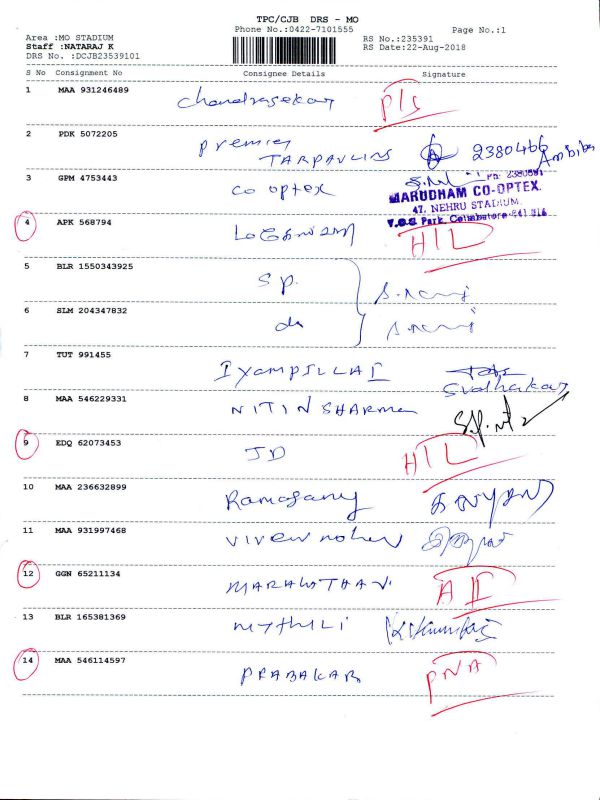 TPC/CJB DRS - MO
Phone No.:0422-7101555
Page No.:1
Area :MO STADIUM
RS No.:235391
Staff :NATARAJ K
RS Date:22-Aug-2018
DRS No. :DCJB23539101
S No Consignment No Consignee Details Signature
1 MAA 931246489 Chandrasekar P/s
2 PDK 5072205 Premier TARPAULINS 2380466 Ambika
3 GPM 4753443 Co optex
MARUDHAM CO-OPTEX.
47, NEHRU STADIUM,
V.O.C Park, Coimbatore-641 018
4 APK 568794 HIL
5 BLR 1550343925 Sp.
6 SLM 204347832 do
7 TUT 991455 IyamPILLAI Sudhakar
8 MAA 546229331 NITIN SHARMA
9 EDQ 62073453 JD HIL
10 MAA 236632899 Ramasamy
11 MAA 931997468 VIVEK
12 GGN 65211134 A II
13 BLR 165381369 MYTHILI
14 MAA 546114597 PRABAKAR PNA